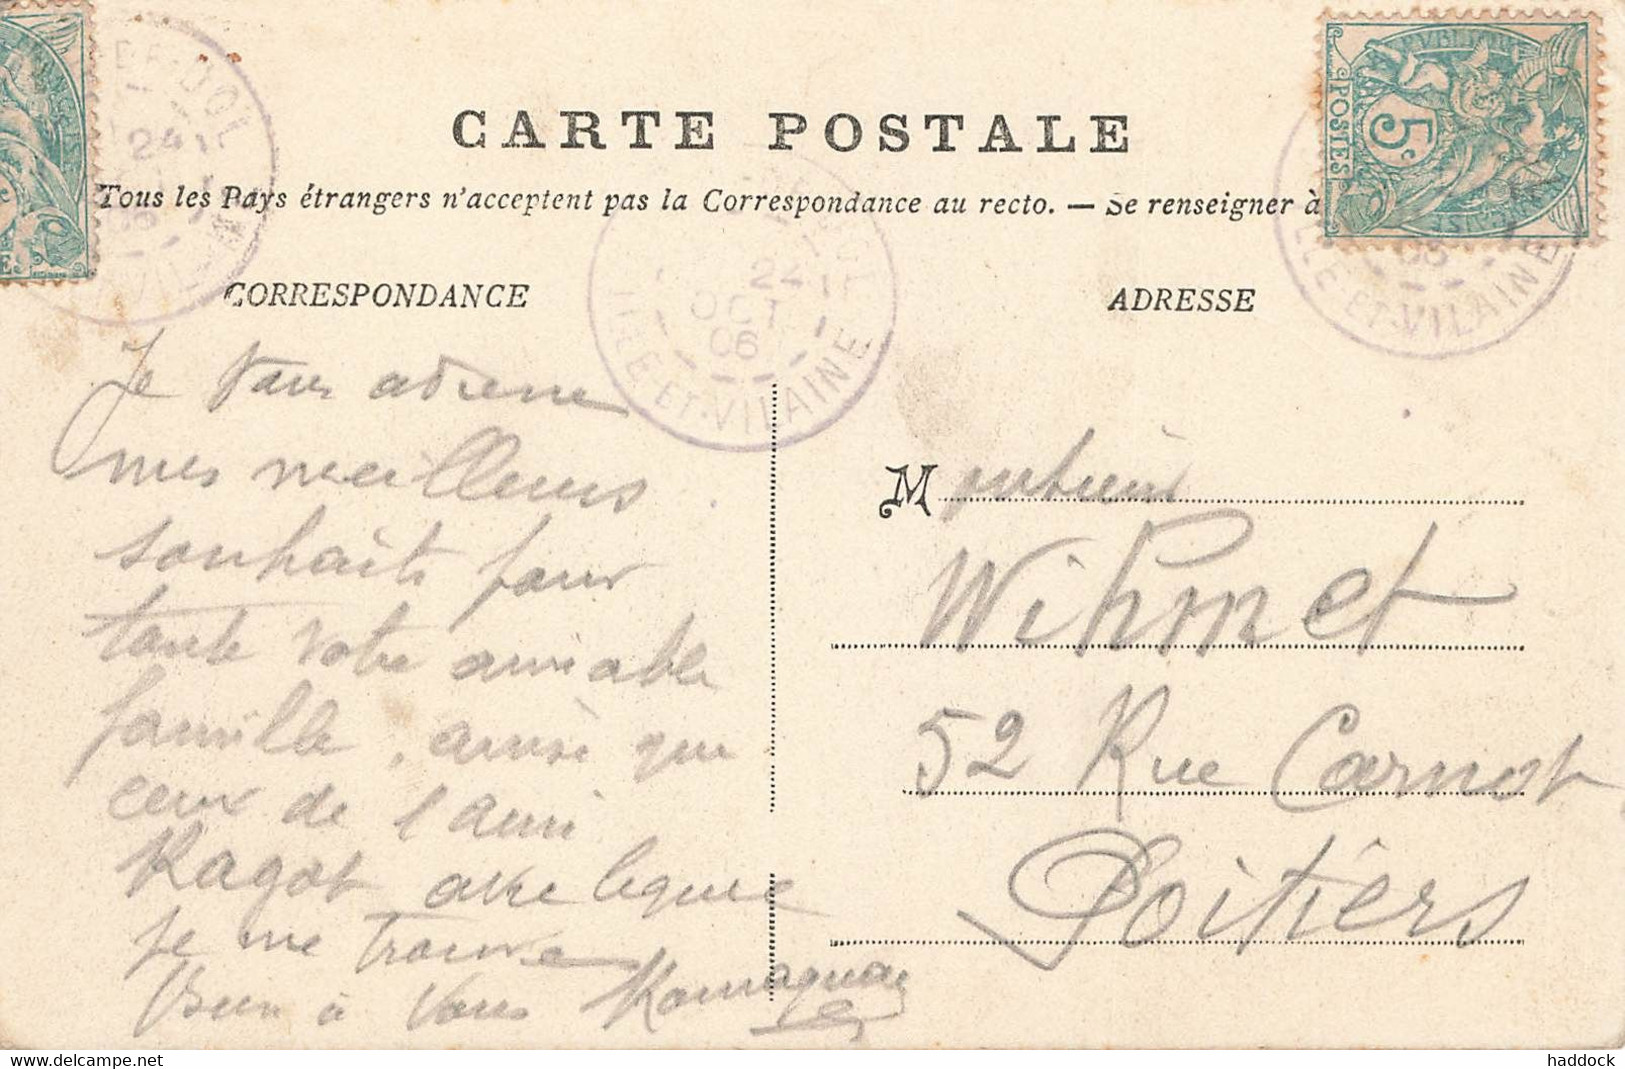 CARTE POSTALE
Tous les Pays étrangers n'acceptent pas la Correspondance au recto. — Se renseigner à
CORRESPONDANCE
ADRESSE
Je vous adresse
mes meilleurs
souhaits pour
toute votre aimable
famille, ainsi que
ceux de l'ami
Ragot avec lequel
je me trouve
Bien à vous
Monsieur
Wihmet
52 Rue Carnot
Poitiers
POSTES
5c
24
OCT
06
ILLE-ET-VILAINE
24
DOL
06
ILLE-ET-VILAINE
delcampe.net
haddock